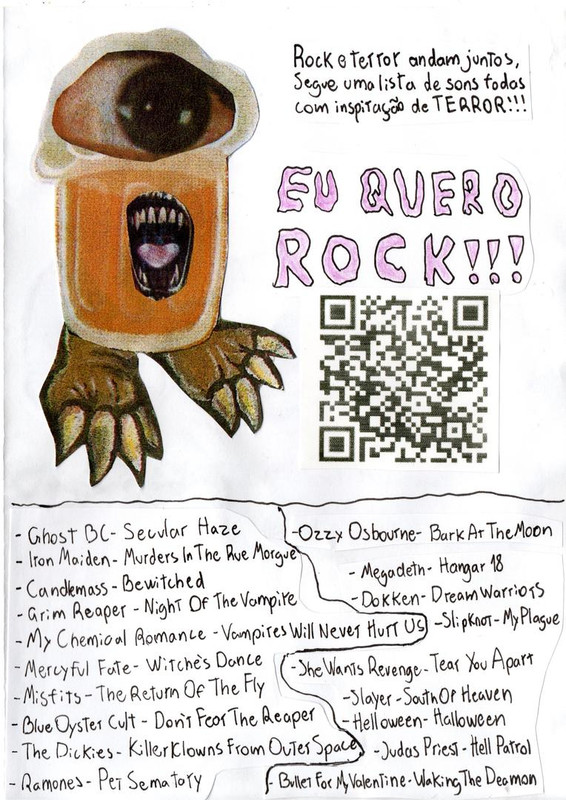 Rock e terror andam juntos,
Segue uma lista de sons todos
com inspiração de TERROR!!!
EU QUERO
ROCK!!!
- Ghost BC - Secular Haze
- Iron Maiden - Murders In The Rue Morgue
- Candlemass - Bewitched
- Grim Reaper - Night Of The Vampire
- My Chemical Romance - Vampires Will Never Hurt Us
- Mercyful Fate - Witche's Dance
- Misfits - The Return Of The Fly
- Blue Oyster Cult - Don't Fear The Reaper
- The Dickies - Killer Klowns From Outer Space
- Ramones - Pet Sematory
- Ozzy Osbourne - Bark At The Moon
- Megadeth - Hangar 18
- Dokken - Dream Warriors
- Slipknot - My Plague
- She Wants Revenge - Tear You Apart
- Slayer - South Of Heaven
- Helloween - Halloween
- Judas Priest - Hell Patrol
- Bullet For My Valentine - Waking The Deamon